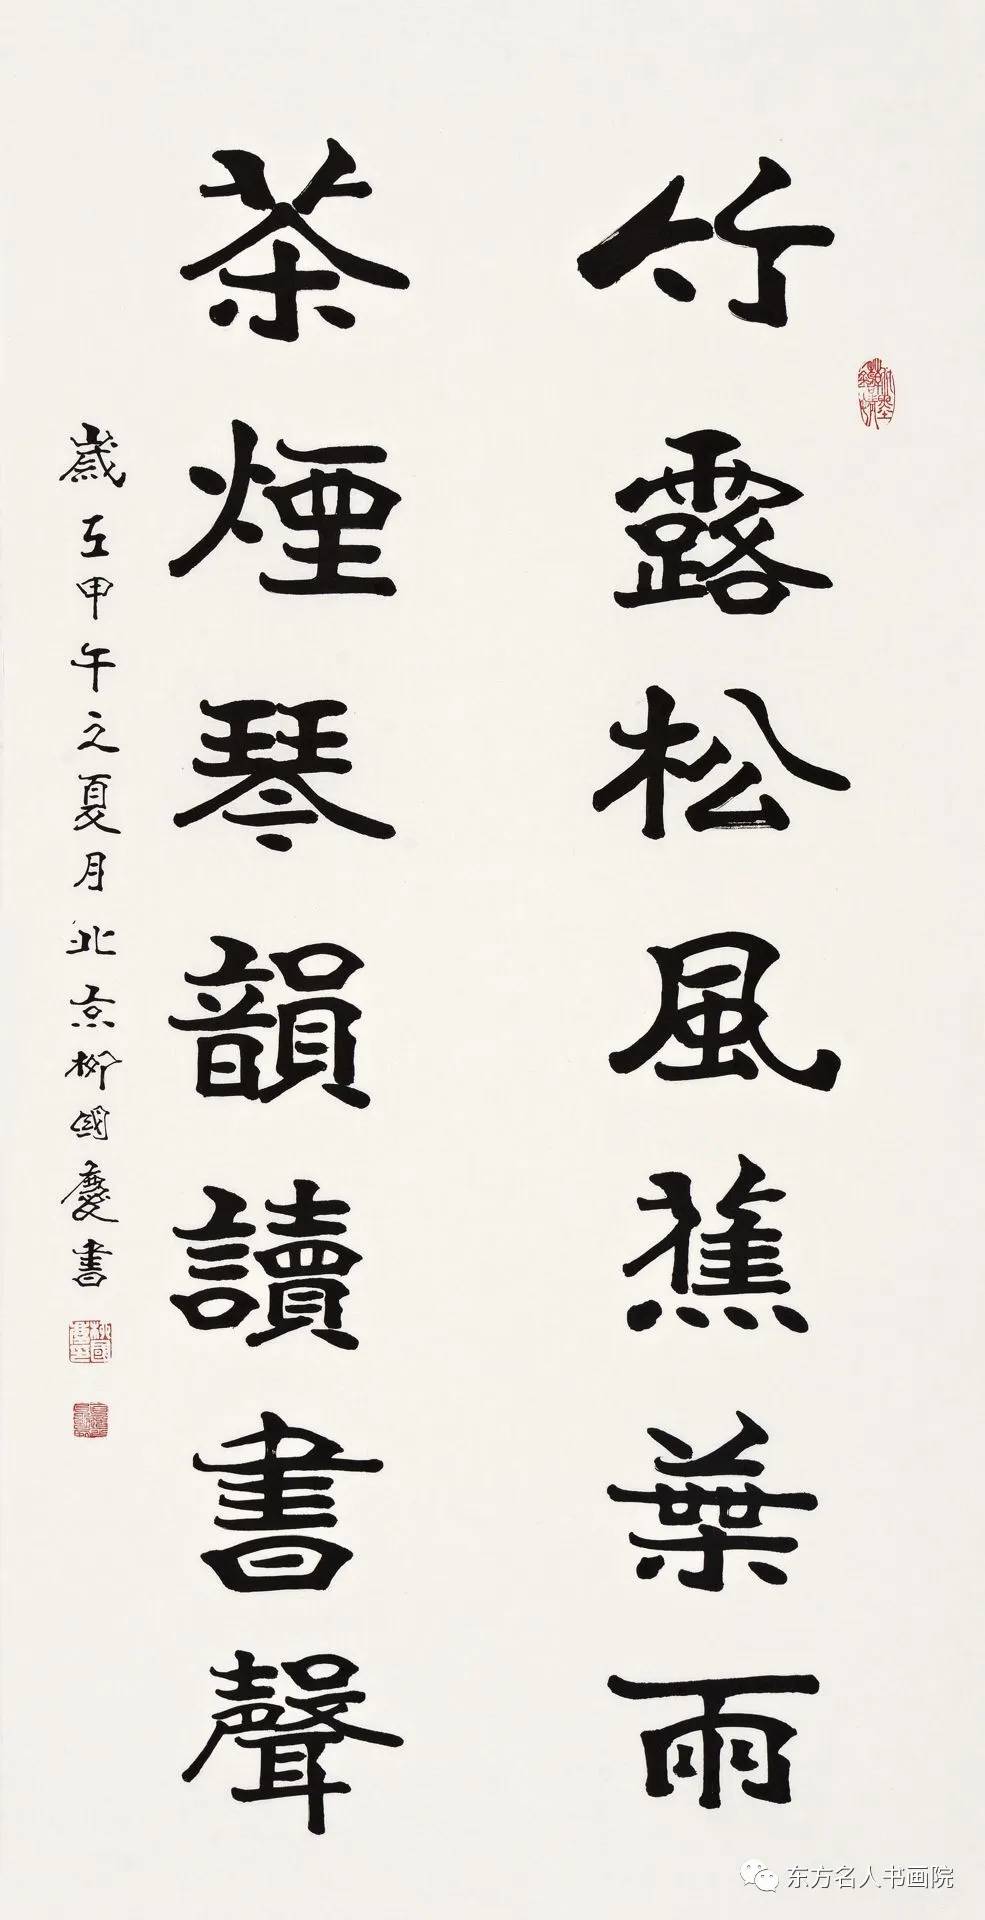 竹露松風蕉葉雨
茶煙琴韻讀書聲
歲在甲午之夏月北京柳國慶書
东方名人书画院